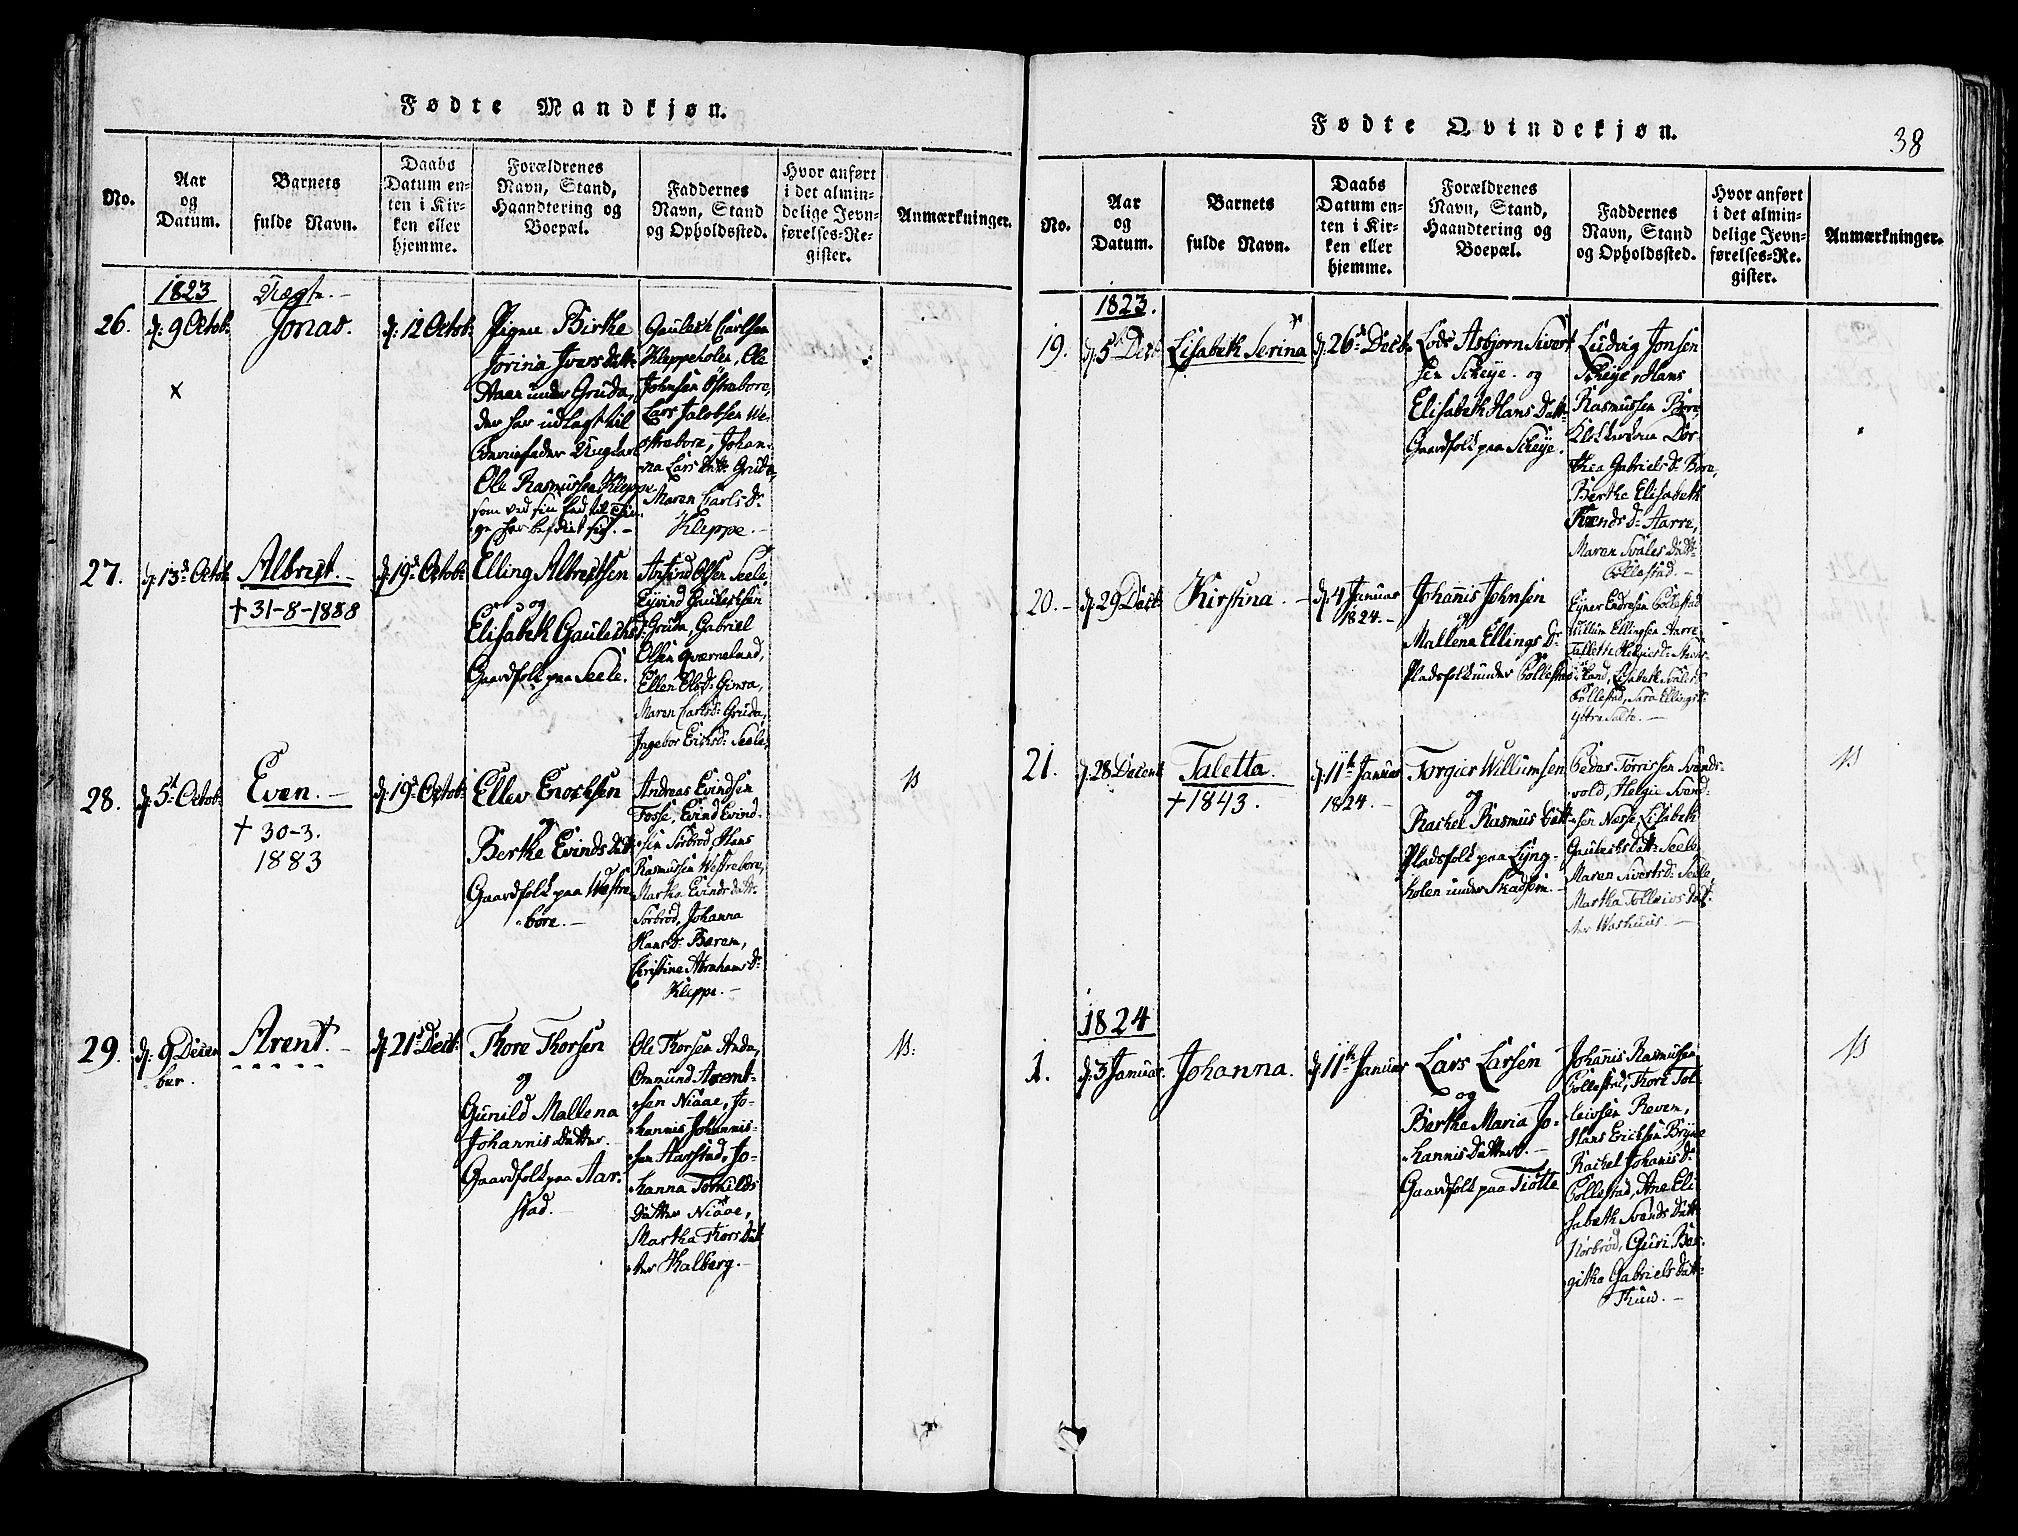 Fødte Mandkjøn.
No.
Aar
og
Datum.
Barnets
fulde Navn.
Daabs
Datum en-
ten i Kir-
ken eller
hjemme.
Forældrenes
Navn, Stand,
Haandtering og
Boepæl.
Faddernes
Navn, Stand
og Opholdssted.
Hvor anført
i det almin-
delige Jevn-
førelses-Re-
gister.
Anmærkninger.
1823
Uægte.
26.
d: 9 Octob:
x
Jonas.
d: 12 Octob:
Pigen Birthe
Jorina Ivers Datt:
under Gruda,
der har udlagt til
Barnefader Ungkarl
Ole Rasmussen Kleppe
som ved sin
har
Gauleth Carlsen
Kleppeholen, Ole
Johnsen Østrebore,
Lars Jacobsen We-
strebore, Johan-
na Lars Datt: Gruda,
Maren Carls D:
Kleppe.
27.
d: 13d Octob:
Albrigt.
† 31-8-1888
d: 19d Octob:
Elling Albrectsen
og
Elisabeth Gauleths D:
Gaardfolk paa Seele.
Olsen Seele,
Eyvind Gaulethsen
Gruda, Gabriel
Olsen Qværneland,
Ellen Olsd: Gimra,
Maren Carlsd: Gruda,
Ingebor Erichsd: Seele,
28.
d: 5d Octob:
Even.
† 30-3.
1883
d: 19d Octob:
Eller Enochsen
og
Berthe Evinds Datt:
Gaardfolk paa Westre
bore.
Andreas Evindsen
Fosse, Evind Evind-
sen Sörbröd, Hans
Rasmussen Westrebore,
Martha Evinds datt:
Sörbröd, Johanna
Hans d:
Christine Abrahams D:
Kleppe.
29.
d: 9 Decem
ber.
Arent.
d: 21d Decb:
Thore Thorsen
og
Gunild Mallena
Johannis Datter.
Gaardfolk paa Aar-
stad.
Ole Thorsen Anda,
Ommund Arent-
sen Niaae, Jo-
hannis Johannis-
sen Aarstad, Jo-
hanna Torkilds
Datter Niaae,
Martha Thors Dat
ter Kalberg.
Fødte Qvindekjøn.
38
No.
Aar
og
Datum.
Barnets
fulde Navn.
Daabs
Datum en-
ten i Kir-
ken eller
hjemme.
Forældrenes
Navn, Stand,
Haandtering og
Boepæl.
Faddernes
Navn, Stand
og Opholdssted.
Hvor anført
i det almin-
delige Jevn-
førelses-Re-
gister.
Anmærkninger.
1823.
19.
d: 5d Decb:
Lisabeth Serina
d: 26d Decb:
Lods Asbjorn Sivert
sen Scheye. og
Elisabeth Hans Datt:
Gaardfolk paa Scheye.
Ludvig Jonsen
Scheye, Hans
Rasmussen Bore
Dor-
thea Gabriels d: Bore,
Berthe Elisabeth
Svends d: Aarre,
Maren Svales Datt:
Böllestad.
20.
d: 29 Decb:
Kirstina.
d: 4 Januar
1824.
Johannis Johnsen
og
Mallena Ellings D:
Pladsfolk underBöllestad
Ejner Endresen Böllestad
Willum Ellingsen Aarre
Lisabeth Svales
Böllestad, Sara Ellingsd:
yttre Salte.
21.
d: 28 Decemb
Taletta.
† 1843.
d: 11th Januar
1824.
Torgier Willumsen
og
Rachel Rasmus Datt:
Pladsfolk paa Lyng-
holen under Skadsem.
Peder Torrissen Svends-
vold, Helgie Svend-
sen Næsse, Lisabeth
Gauleths datt: Seele
Maren Siverts d: Seele
Martha Tolleivs Dat-
ter Washuus.
1824
1.
d: 3 Januar
Johanna.
d: 11th Januar
Lars Larsen
og
Berthe Maria Jo-
hannis Datter.
Gaardfolk paa Tiötte
Johannis Rasmussen
Böllestad, Thore Tol-
leivsen Reven,
Hans Erichsen Bryne
Rachel Johanis d:
Böllestad, Ane Eli
sabeth Svends Datt:
Norbröd, Guri Ber-
githa Gabriels Datt:
Thuv.